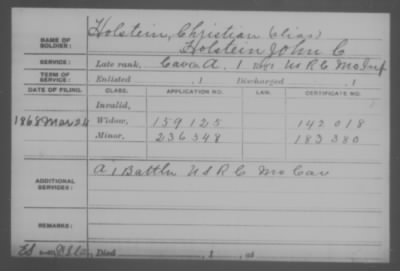 NAME OF SOLDIER: Holstein, Christian (alias)
Holstein John C
SERVICE: Late rank, Cav A. 1 Regt U S R C Mo Inf
TERM OF SERVICE: Enlisted , 1 Discharged , 1
DATE OF FILING. CLASS. APPLICATION NO. LAW. CERTIFICATE NO.
Invalid,
1868 Mar 24 Widow, 159125 142018
Minor, 236348 183380
ADDITIONAL SERVICES: A, 1 Battln U S R C Mo Cav
REMARKS:
Died , 1 , at